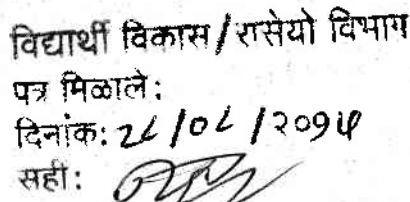 विद्यार्थी विकास/रासेयो विभाग
पत्र मिळाले:
दिनांक: २८/०८/२०१५
सही: